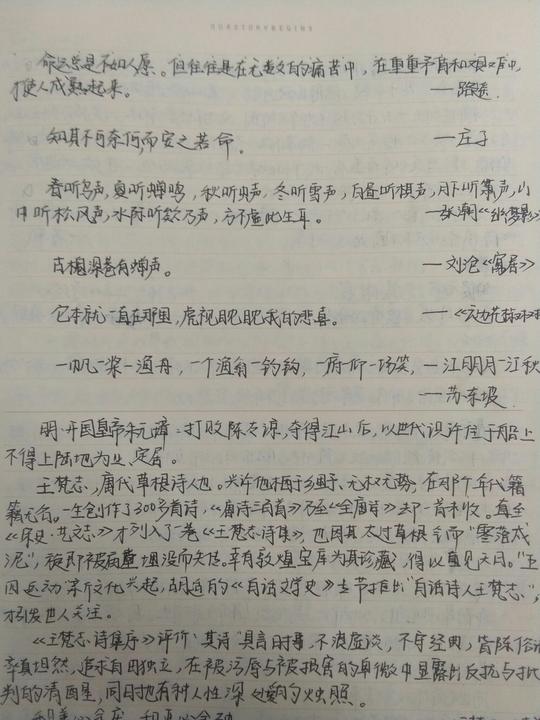 命运总是不如人愿。但往往是在无数的痛苦中，在重重矛盾和艰辛中，
才使人成熟起来。 —路遥
知其不可奈何而安之若命。 —庄子
春听鸟声，夏听蝉鸣，秋听虫声，冬听雪声，白昼听棋声，月下听箫声，山
中听松风声，水际听欸乃声，方不虚此生耳。 —张潮《幽梦影》
古槐深巷有蝉声。 —刘沧《寓居》
它本就一直在那里，虎视眈眈我的悲喜。 —《云边
一帆一桨一渔舟，一个渔翁一钓钩，一俯一仰一场笑，一江明月一江秋
—苏东坡
明·开国皇帝朱元璋：打败陈友谅，夺得江山后，以世代只许住于船上
不得上陆地为业、定居。
王梵志，唐代草根诗人也。兴许他栖于乡里、无权无势，在那个年代籍
籍无名。一生创作了300多首诗，《唐诗三百首》乃至《全唐诗》却一首未收。直至
《宋史·艺文志》才列入了一卷《王梵志诗集》，也因其太过草根名而“零落成
泥”，旋即被 埋没而失传。幸有敦煌宝库为其珍藏，得以重见天日。“五
四运动”新文化兴起，胡适的《白话文学史》专节推出“白话诗人王梵志”，
才引发世人关注。
《王梵志诗集序》评价：其诗“具言时事，不浪虚谈，不守经典，皆陈俗语
率真坦然，追求自由独立，在被污辱与被损害的卑微中显露出反抗与批
判的清醒，同时也有种人性深处的烛照。